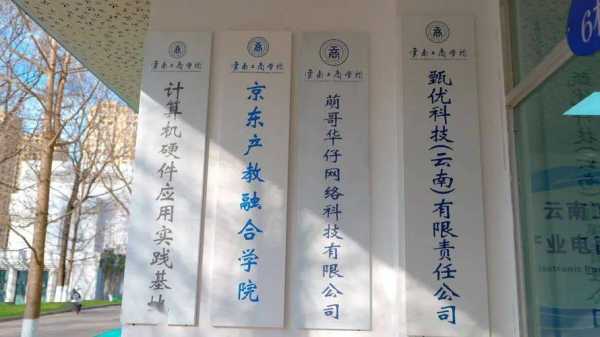 云南工商学院
计算机硬件应用实践基地
云南工商学院
京东产教融合学院
云南工商学院
萌哥华仔网络科技有限公司
云南工商学院
甄优科技(云南)有限责任公司
6栋
云南
业电商